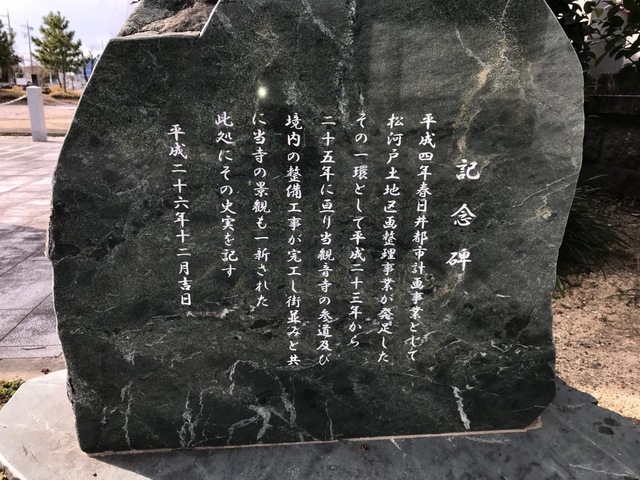 記念碑
平成四年春日井都市計画事業として
松河戸土地区画整理事業が発足した
その一環として平成二十三年から
二十五年に亘り当観音寺の参道及び
境内の整備工事が完工し街並みと共
に当寺の景観も一新された
此処にその史実を記す
平成二十六年十二月吉日